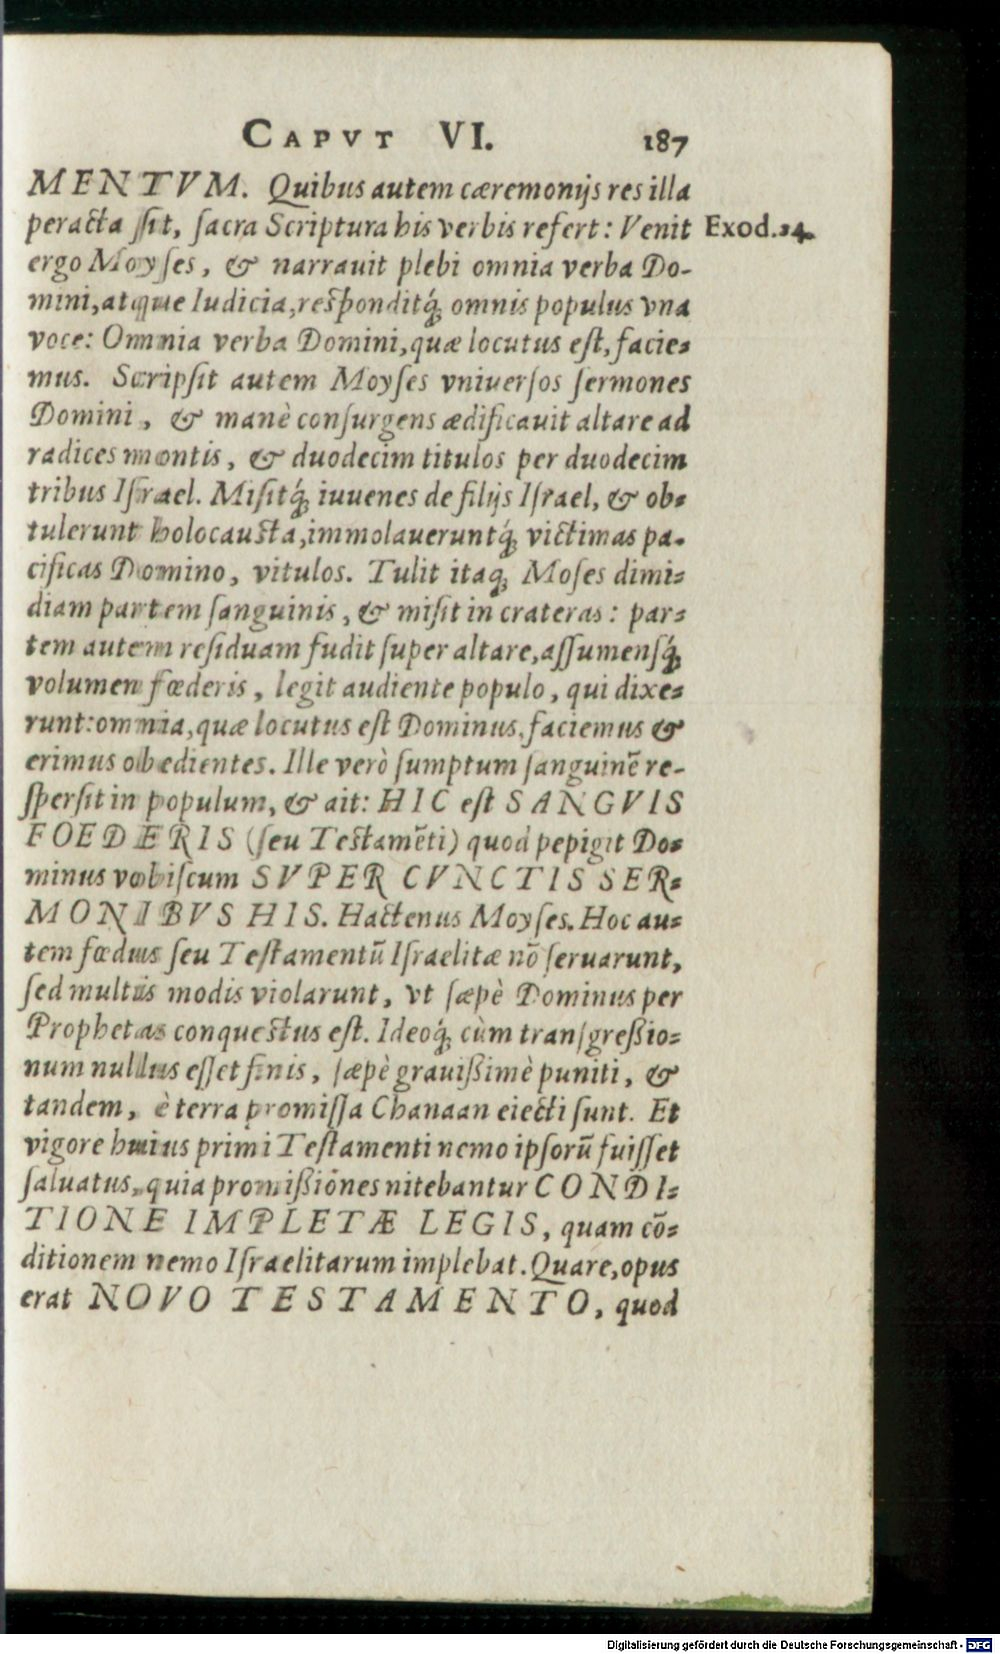 CAPVT VI. 187
MENTVM. Quibus autem cæremonijs res illa
peracta ſit, ſacra Scriptura his verbis refert: Venit Exod. 24.
ergo Moyſes, & narrauit plebi omnia verba Do-
mini, atque Iudicia, reſponditq́; omnis populus vna
voce: Omnia verba Domini, quæ locutus eſt, facie-
mus. Scripſit autem Moyſes vniuerſos ſermones
Domini, & manè conſurgens ædificauit altare ad
radices montis, & duodecim titulos per duodecim
tribus Iſrael. Miſitq́; iuuenes de filijs Iſrael, & ob-
tulerunt holocauſta, immolaueruntq́; victimas pa-
cificas Domino, vitulos. Tulit itaq; Moſes dimi-
diam partem ſanguinis, & miſit in crateras: par-
tem autem reſiduam fudit ſuper altare, aſſumenſq́;
volumen fœderis, legit audiente populo, qui dixe-
runt: omnia, quæ locutus eſt Dominus, faciemus &
erimus obedientes. Ille verò ſumptum ſanguinē re-
ſperſit in populum, & ait: HIC eſt SANGVIS
FOEDERIS (ſeu Teſtamēti) quod pepigit Do-
minus vobiſcum SVPER CVNCTIS SER-
MONIBVS HIS. Hactenus Moyſes. Hoc au-
tem fœdus ſeu Teſtamentū Iſraelitæ nō ſeruarunt,
ſed multis modis violarunt, vt ſæpè Dominus per
Prophetas conqueſtus eſt. Ideoq́; cùm tranſgreßio-
num nullus eſſet finis, ſæpè grauißimè puniti, &
tandem, è terra promiſſa Chanaan eiecti ſunt. Et
vigore huius primi Teſtamenti nemo ipſorū fuiſſet
ſaluatus, quia promißiones nitebantur CONDI-
TIONE IMPLETÆ LEGIS, quam cō-
ditionem nemo Iſraelitarum implebat. Quare, opus
erat NOVO TESTAMENTO, quod
Digitalisierung gefördert durch die Deutsche Forschungsgemeinschaft - DFG